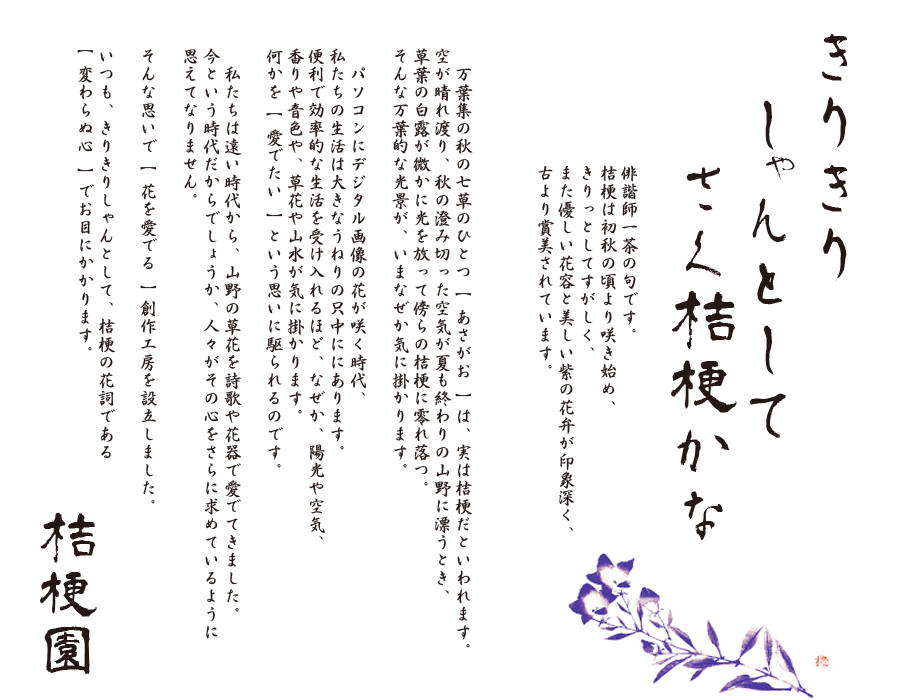 きりきり
しゃんとして
さく桔梗かな
俳諧師一茶の句です。
桔梗は初秋の頃より咲き始め、
きりっとしてすがしく、
また優しい花容と美しい紫の花弁が印象深く、
古より賞美されています。
万葉集の秋の七草のひとつ【あさがお】は、実は桔梗だといわれます。
空が晴れ渡り、秋の澄み切った空気が夏も終わりの山野に漂うとき、
草葉の白露が微かに光を放って傍らの桔梗に零れ落つ。
そんな万葉的な光景が、いまなぜか気に掛かります。
パソコンにデジタル画像の花が咲く時代、
私たちの生活は大きなうねりの只中ににあります。
便利で効率的な生活を受け入れるほど、なぜか、陽光や空気、
香りや音色や、草花や山水が気に掛かります。
何かを【愛でたい】という思いに駆られるのです。
私たちは遠い時代から、山野の草花を詩歌や花器で愛でてきました。
今という時代だからでしょうか、人々がその心をさらに求めているように
思えてなりません。
そんな思いで【花を愛でる】創作工房を設立しました。
いつも、きりきりしゃんとして、桔梗の花詞である
【変わらぬ心】でお目にかかります。
桔梗園